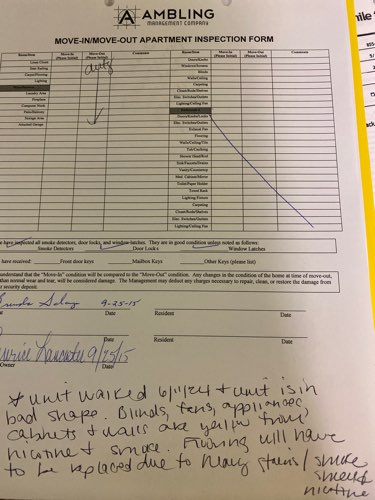 AMBLING
MANAGEMENT COMPANY
MOVE-IN/MOVE-OUT APARTMENT INSPECTION FORM
Room/Item Move-In (Please Initial) Move-Out (Please Initial) Comments Room/Item Move-In (Please Initial) Move-Out (Please Initial) Comments
Linen Closet Doors/Knobs
Stair Railing Windows/Screens
Closet/Flooring Blinds
Lighting Walls/Ceiling
Carpeting
Laundry Area Closet/Rods/Shelves
Fireplace Elec. Switches/Outlets
Computer Nook Lighting/Ceiling Fan
Patio/Balcony
Storage Area Doors/Knobs/Locks
Attached Garage Elec. Switches/Outlets
Exhaust Fan
Flooring
Walls/Ceiling/Tile
Tub/Caulking
Shower Head/Rod
Sink/Faucets/Drains
Vanity/Countertop
Med. Cabinet/Mirror
Toilet/Paper Holder
Towel Rack
Lighting Fixture
Carpeting
Closet/Rods/Shelves
Elec. Switches/Outlets
Lighting/Ceiling Fan
e have inspected all smoke detectors, door locks, and window latches. They are in good condition unless noted as follows:
Smoke Detectors Door Locks Window Latches
have received: Front door keys Mailbox Keys Other Keys (please list)
understand that the "Move-In" condition will be compared to the "Move-Out" condition. Any changes in the condition of the home at time of move-out,
than normal wear and tear, will be considered damage. The Management may deduct any charges necessary to repair, clean, or restore the damage from
r security deposit.
9-25-15
Date Resident Date
9/25/15
Owner Date Resident Date
* unit walked 6/11/24 & unit is in
bad shape. Blinds, fans, appliances,
cabinets & walls are yellow from
nicotine & smoke. Flooring will have
to be replaced due to many stains/smoke
smell &
nicotine